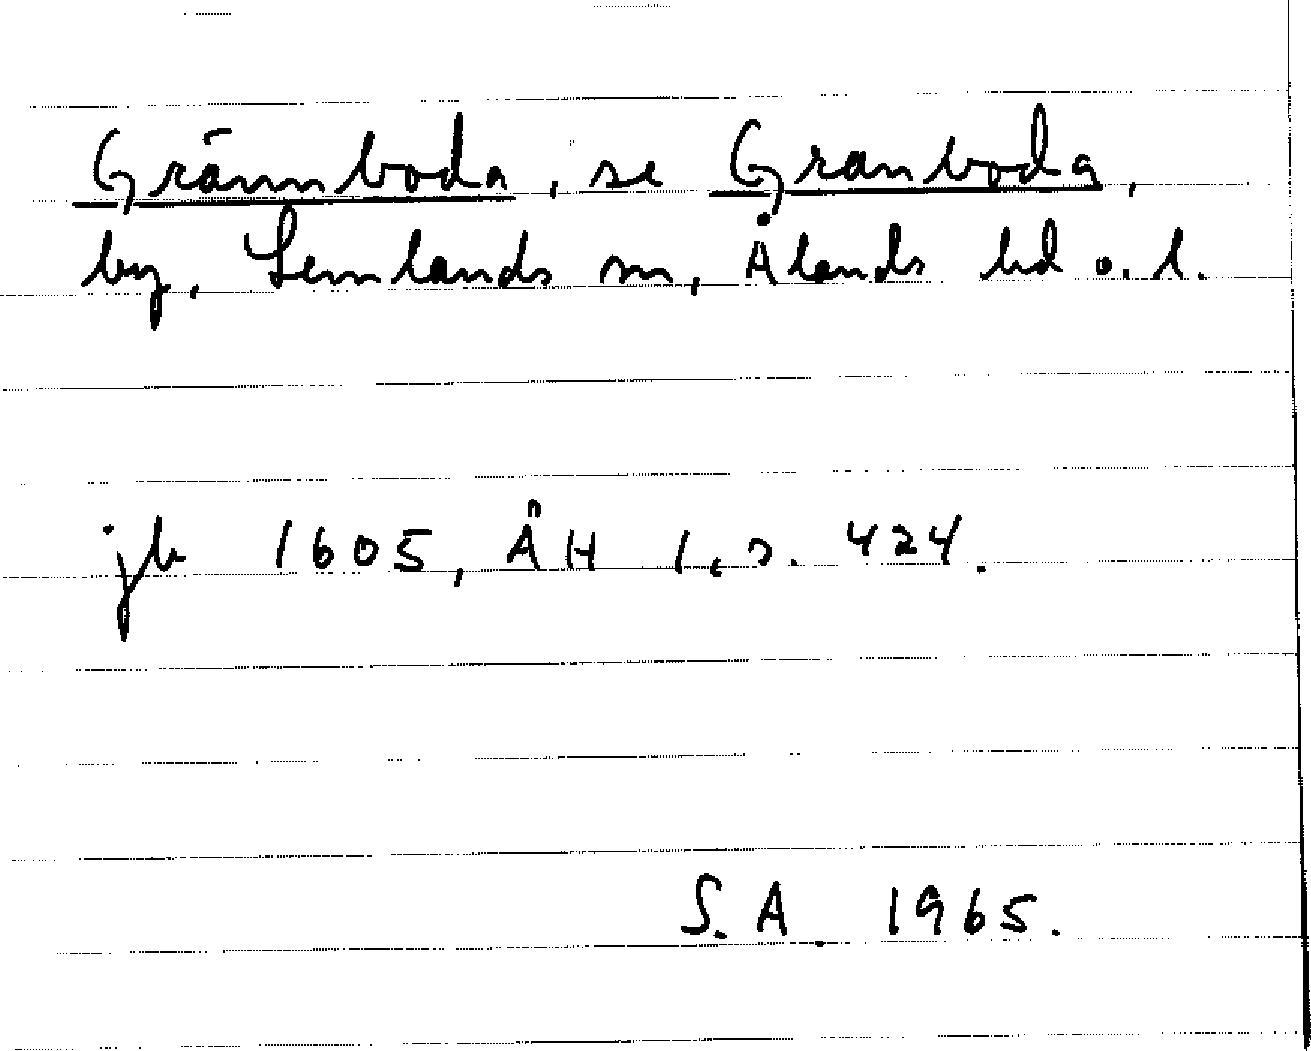 Grännboda, se Granboda,
by, Lemlands sn, Ålands hd o. l.
jb 1605, ÅH I, s. 424.
S. A. 1965.